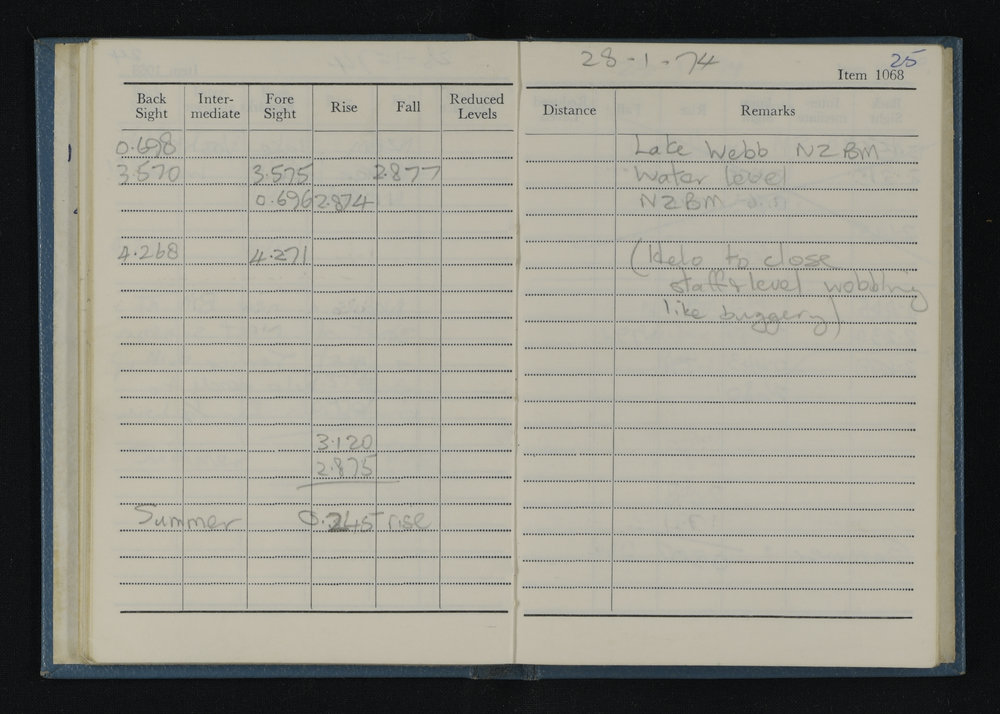 28-1-74
25
Item 1068
Back Sight Inter-mediate Fore Sight Rise Fall Reduced Levels Distance Remarks
0.698 Lake Webb NZBM
3.570 3.575 2.877 Water level
0.696 2.874 NZBM
4.268 4.271 (Helo to close
staff & level wobbling
like buggery)
3.120
2.875
Summer 0.245 rise